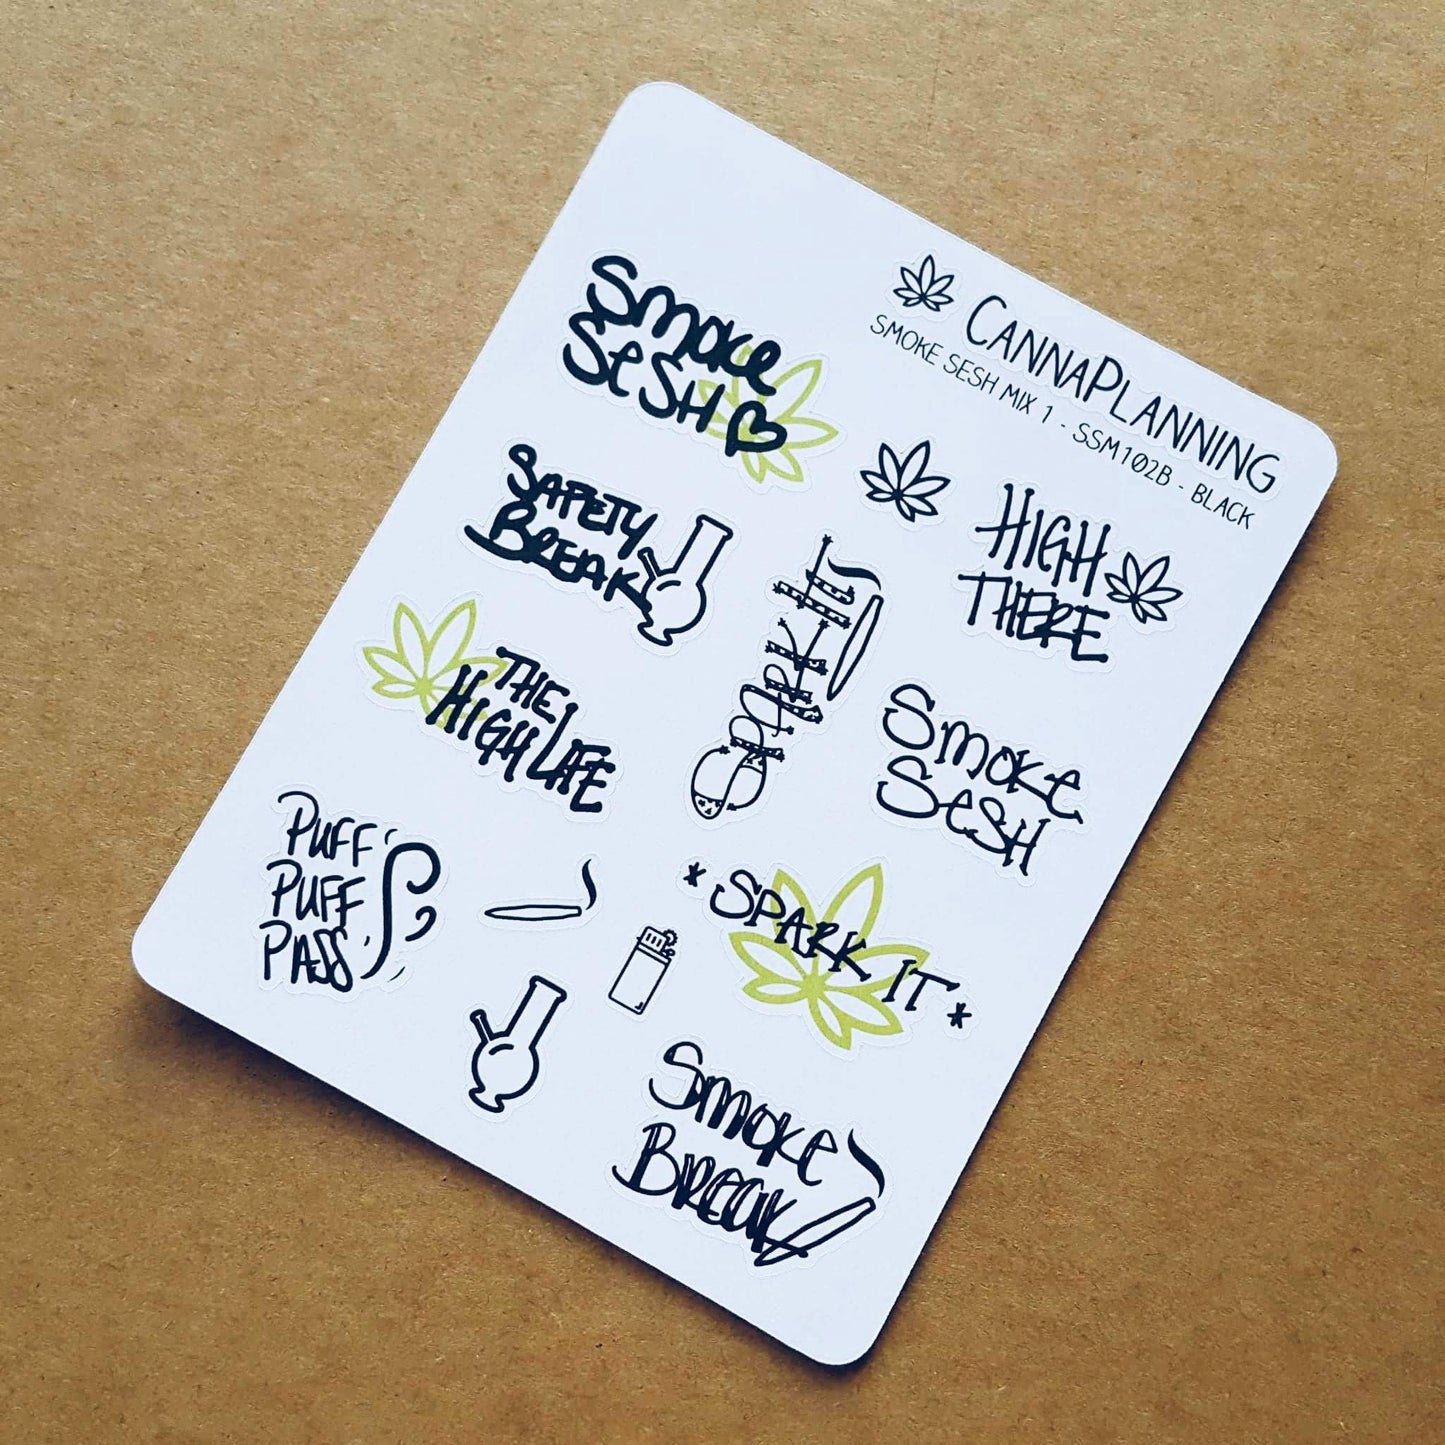 CANNAPLANNING
SMOKE SESH MIX 1 - SSM102B - BLACK
SMOKE
SESH
SAFETY
BREAK
HIGH
THERE
SPARK IT
THE
HIGH LIFE
SMOKE
SESH
PUFF
PUFF
PASS
*SPARK IT*
SMOKE
BREAK